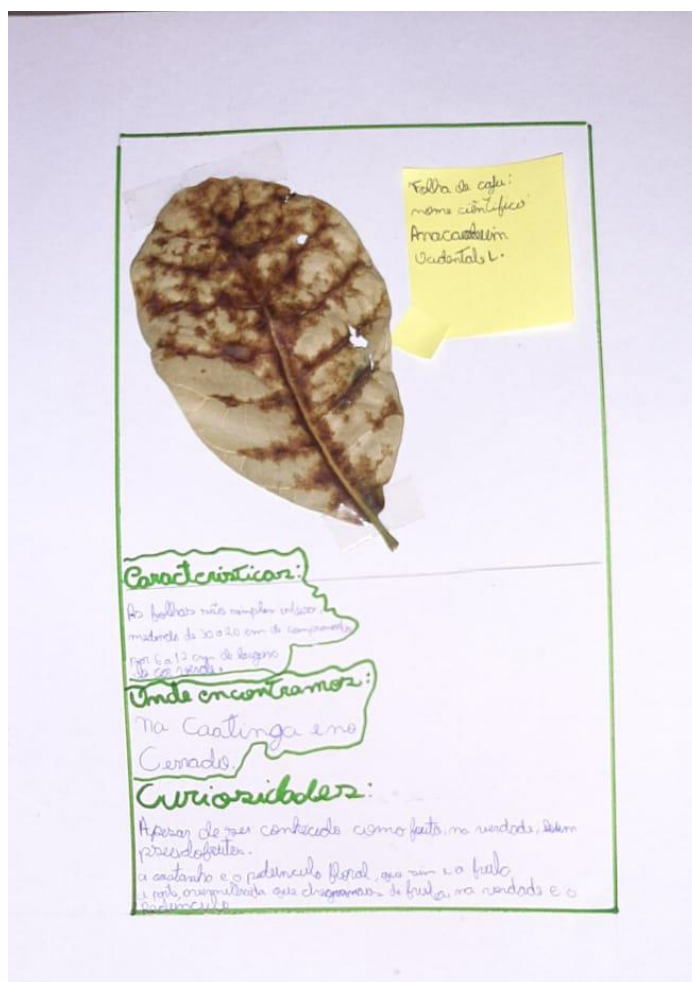 Folha de caju:
nome científico
Ocidental L.
Características:
As folhas são simples
medindo de 10 a 20 cm de comprimento
por 6 a 12 cm de largura
de cor verde.
Onde encontramos:
na Caatinga e no
Cerrado.
Curiosidades:
Apesar de ser conhecido como fruto, na verdade,
pseudofrutos.
a castanha e o pedúnculo floral, que sim e a fruta
que chegamos de fruta, na verdade e o
pedúnculo